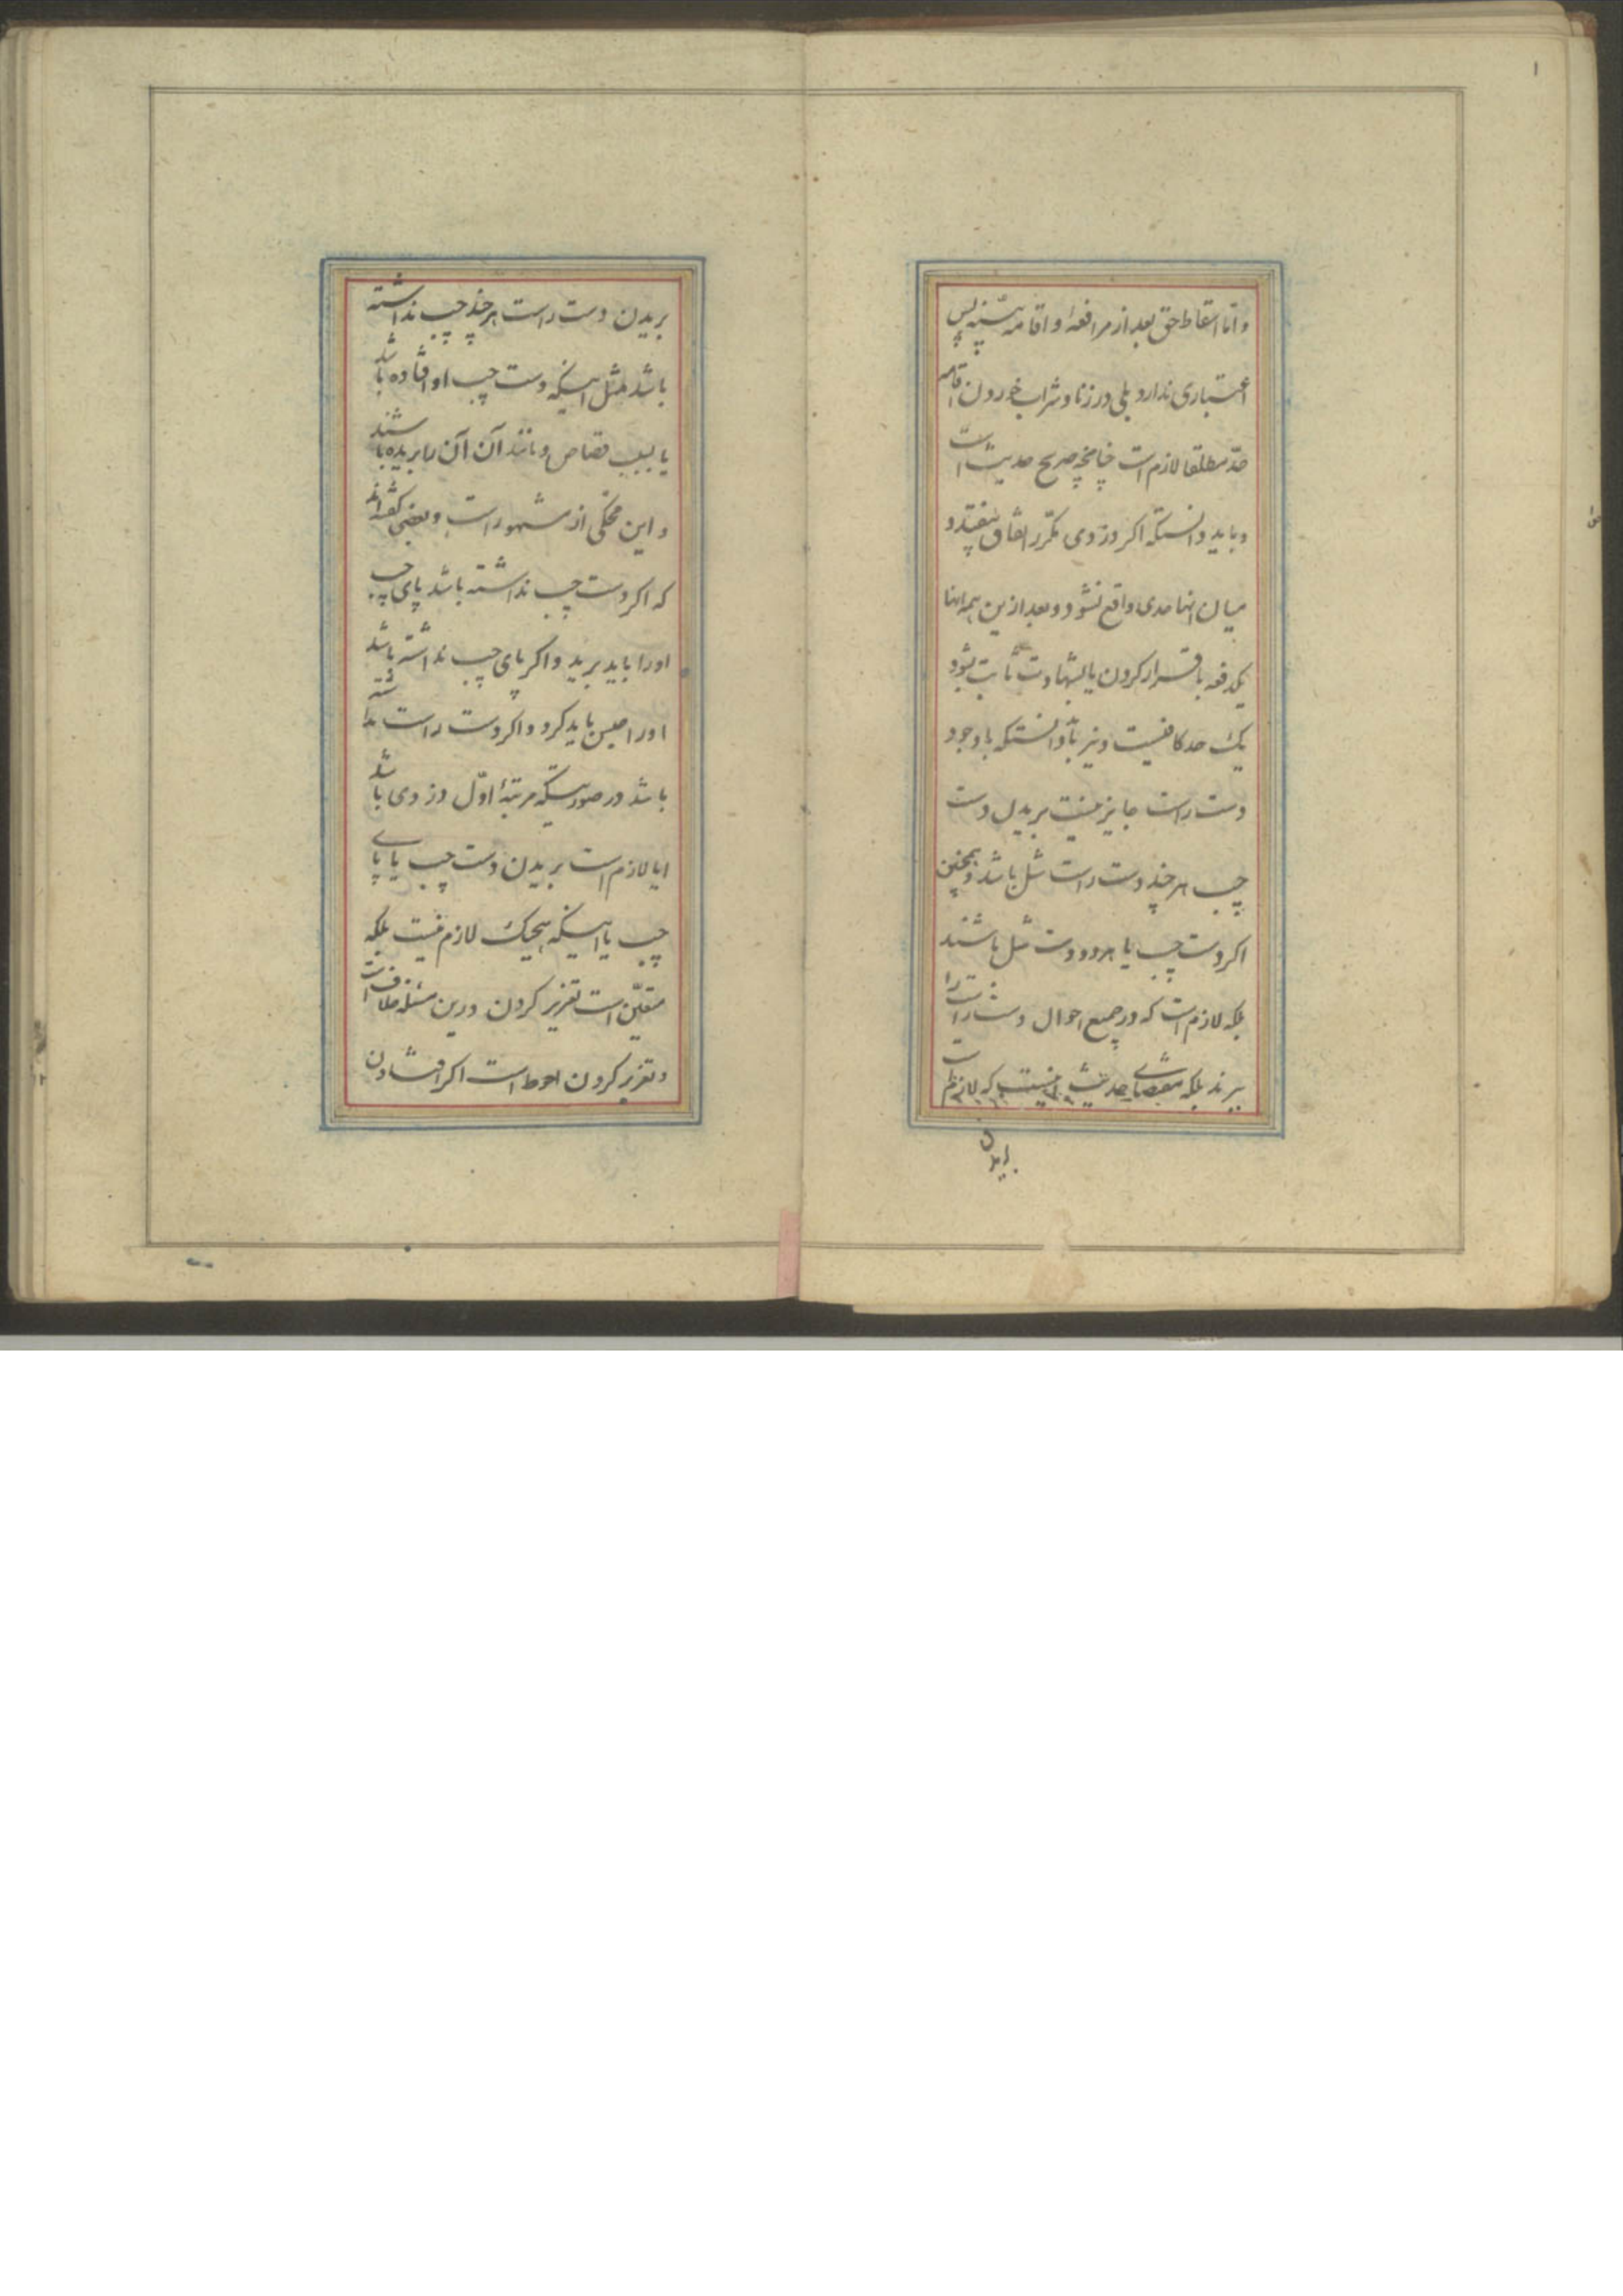 ۱
و اما اسقاط حق بعد از مرافعه و اقامه بینه پس
اعتباری ندارد بلی در زنا و شراب خوردن اقامه
حد مطلقا لازم است چنانچه صریح حدیث است
و باید دانستکه اکر دزدی مکرر اتفاق بیفتد و
میان انها حدی واقع نشود و بعد ازین همه انها
یکدفعه باقرار کردن یا بشهادت ثابت بشود
یک حد کافیست و نیز باید دانستکه با وجود
دست راست جایز نیست بریدن دست
چپ هر چند دست راست شل باشد و همچنین
اکر دست چپ یا هر دو دست شل باشند
بلکه لازم است که در جمیع احوال دست راست را
ببرند بلکه بمقتضای حدیث اینست که لازم است
بریدن
بریدن دست راست هر چند چپ نداشته
باشد مثل اینکه دست چپ او افتاده باشد
یا بسبب قصاص و مانند آن آن را بریده باشند
و این محکی از مشهور است و بعضی کفته‌اند
که اکر دست چپ نداشته باشد پای چپ
اورا باید برید و اکر پای چپ نداشته باشد
اورا حبس باید کرد و اکر دست راست نداشته
باشد در صورتیکه مرتبهٔ اوّل دزدی باشد
ایا لازم است بریدن دست چپ یا پای
چپ یا اینکه هیچیک لازم نیست بلکه
متعیّن است تعزیر کردن درین مسئله خلافست
و تعزیر کردن احوط است اکر افتادن